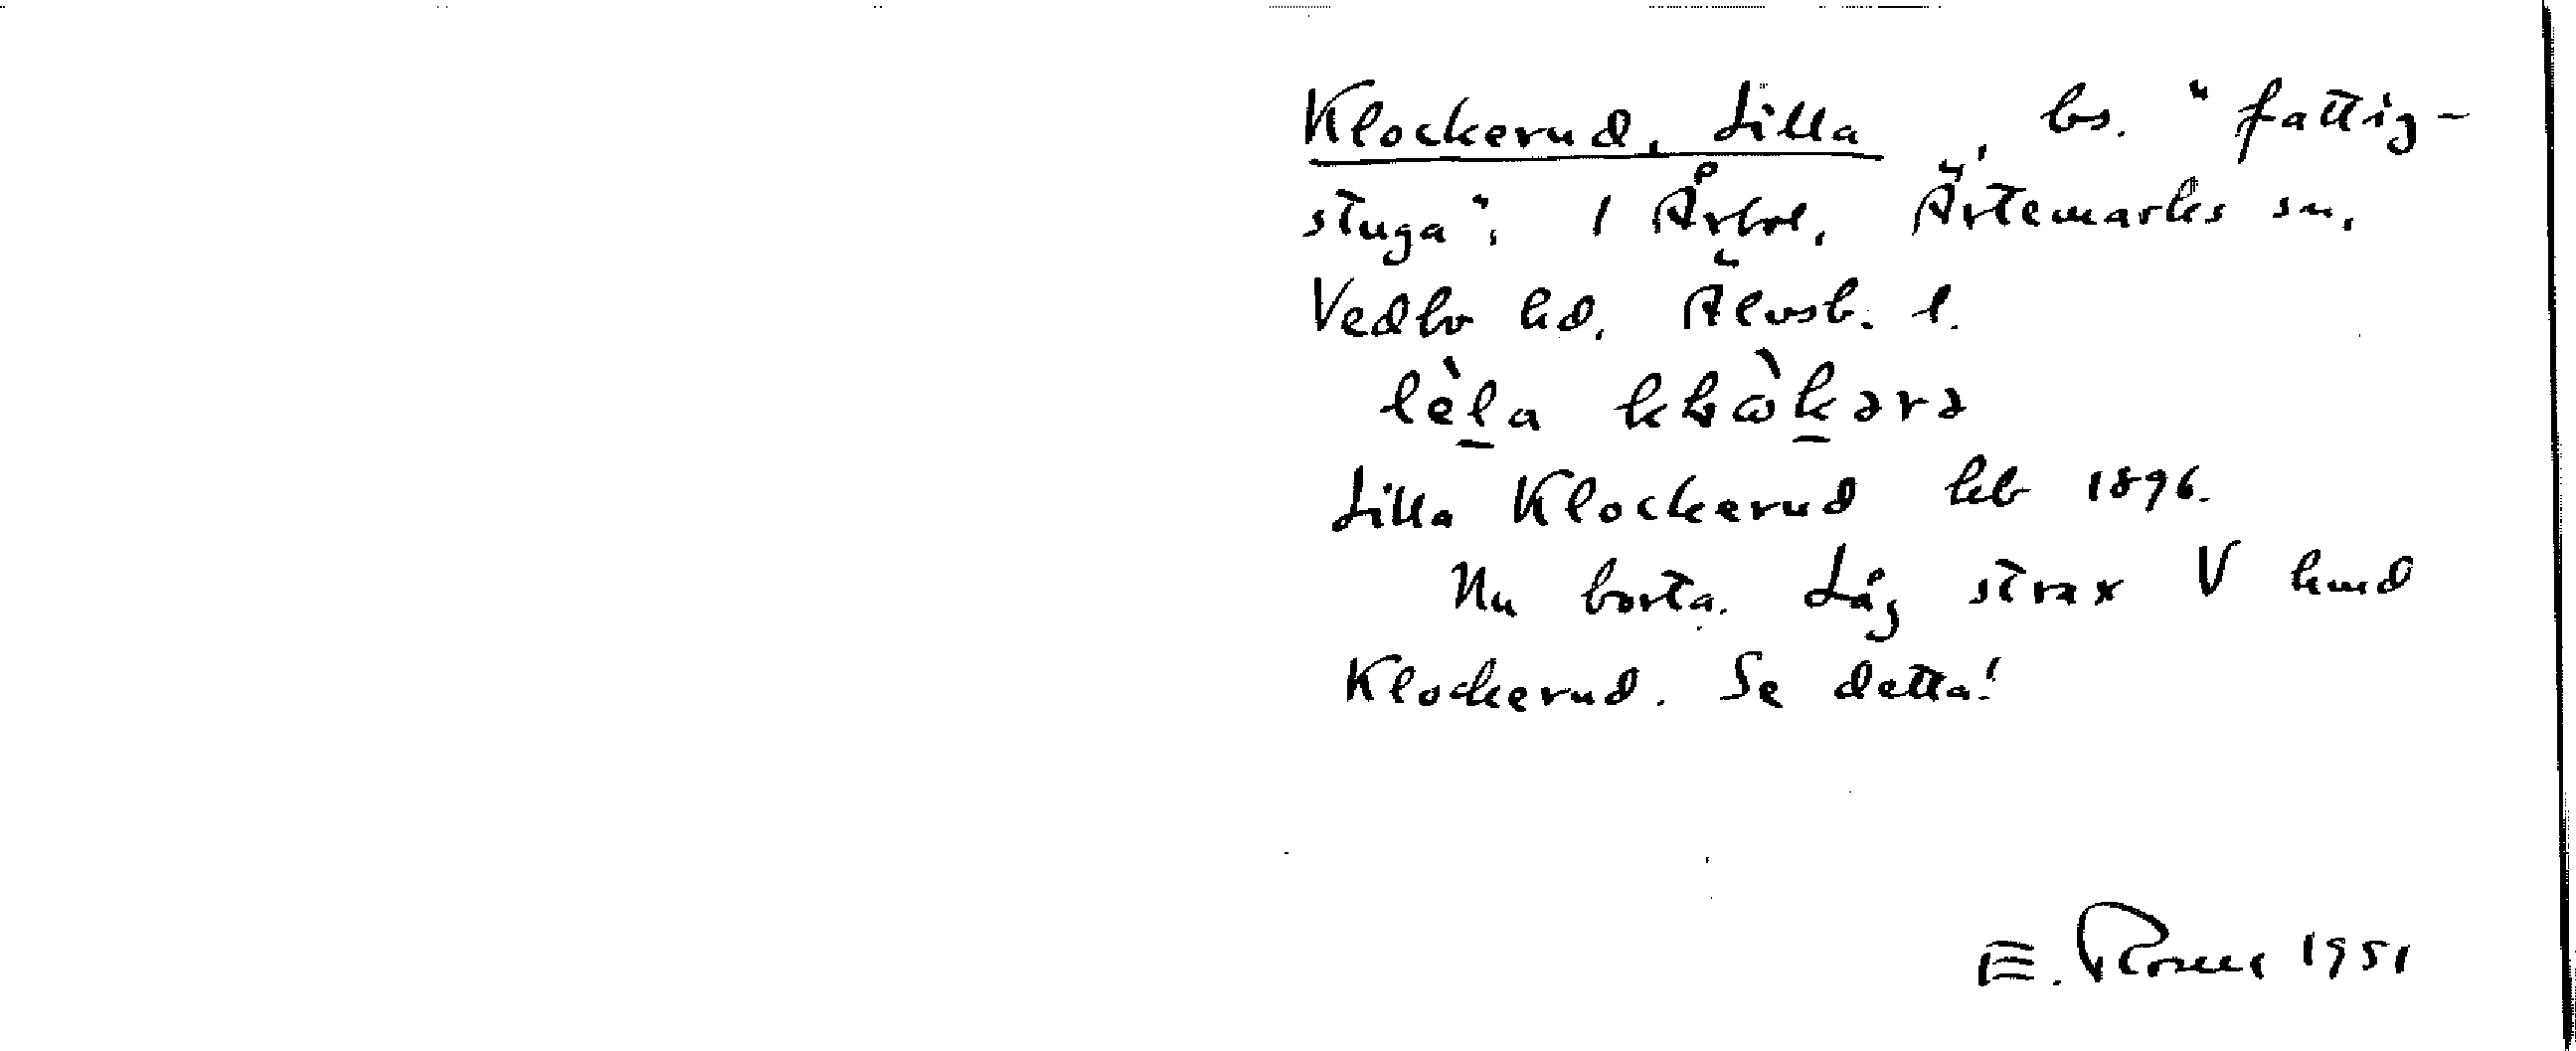 Klockerud, Lilla, bs. "fattig-
stuga", 1 Årbol, Ärtemarks sn,
Vedbo hd, Älvsb. l.
lèla
Lilla Klockerud kb 1896.
Nu borta. Låg strax V hmd
Klockerud. Se detta!
E. 1951